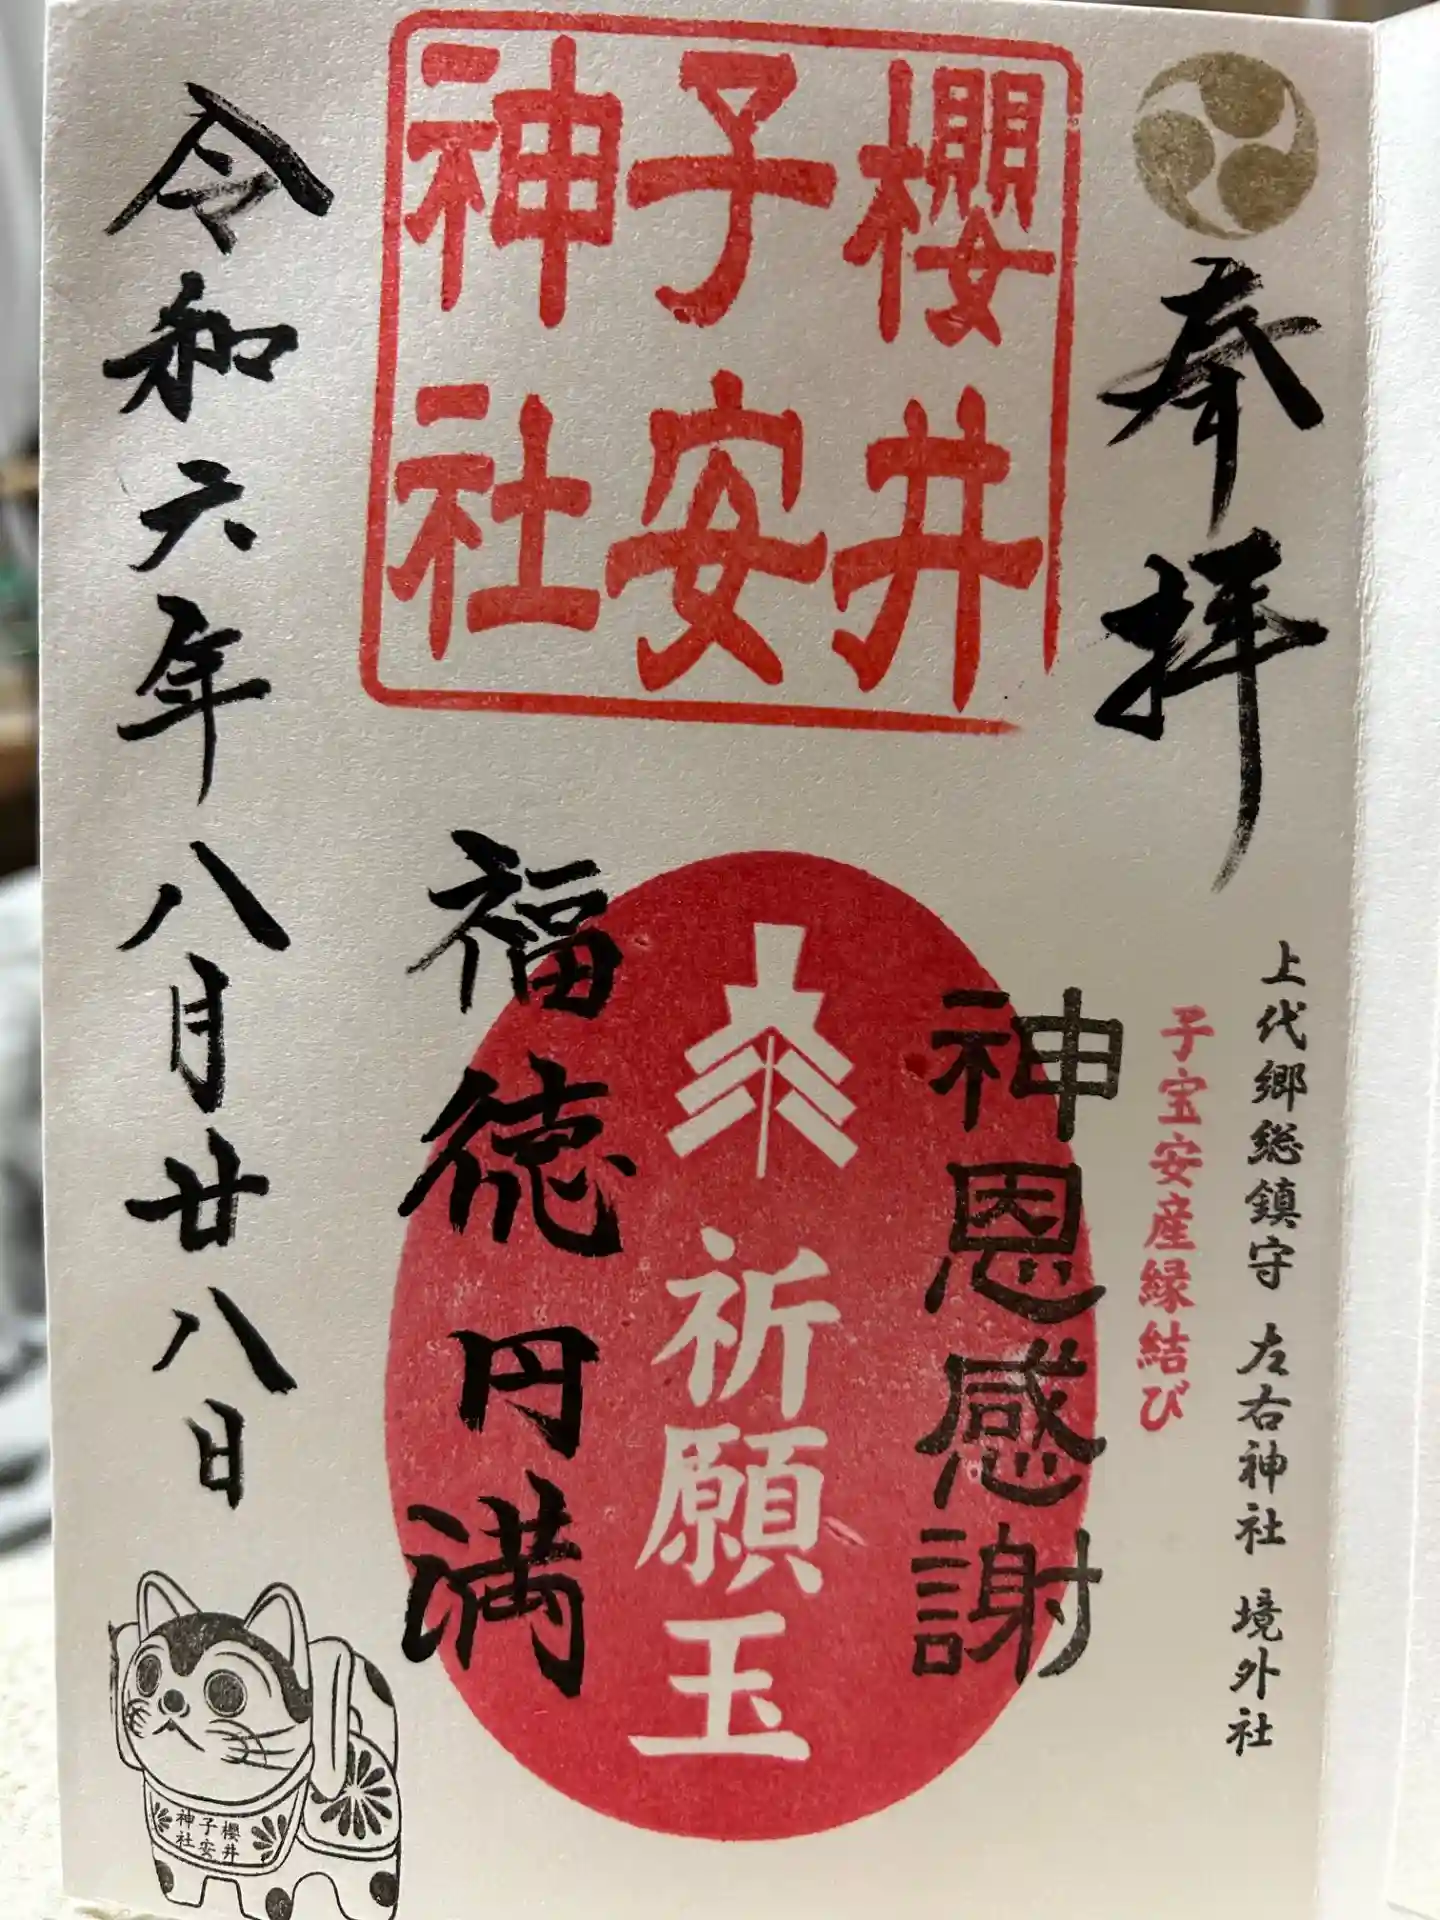 奉拝
上代郷総鎮守 左右神社 境外社
子宝安産縁結び
櫻井
子安
神社
神恩感謝
祈願玉
福徳円満
令和六年八月廿八日
櫻井
子安
神社